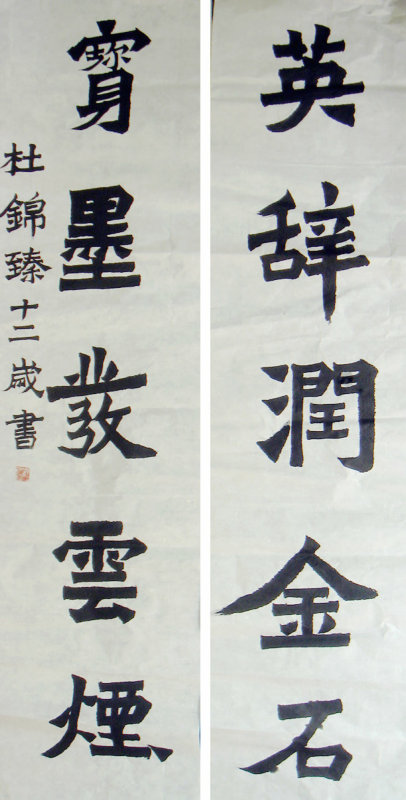 英辞潤金石
寶墨發雲煙
杜錦臻十二歲書